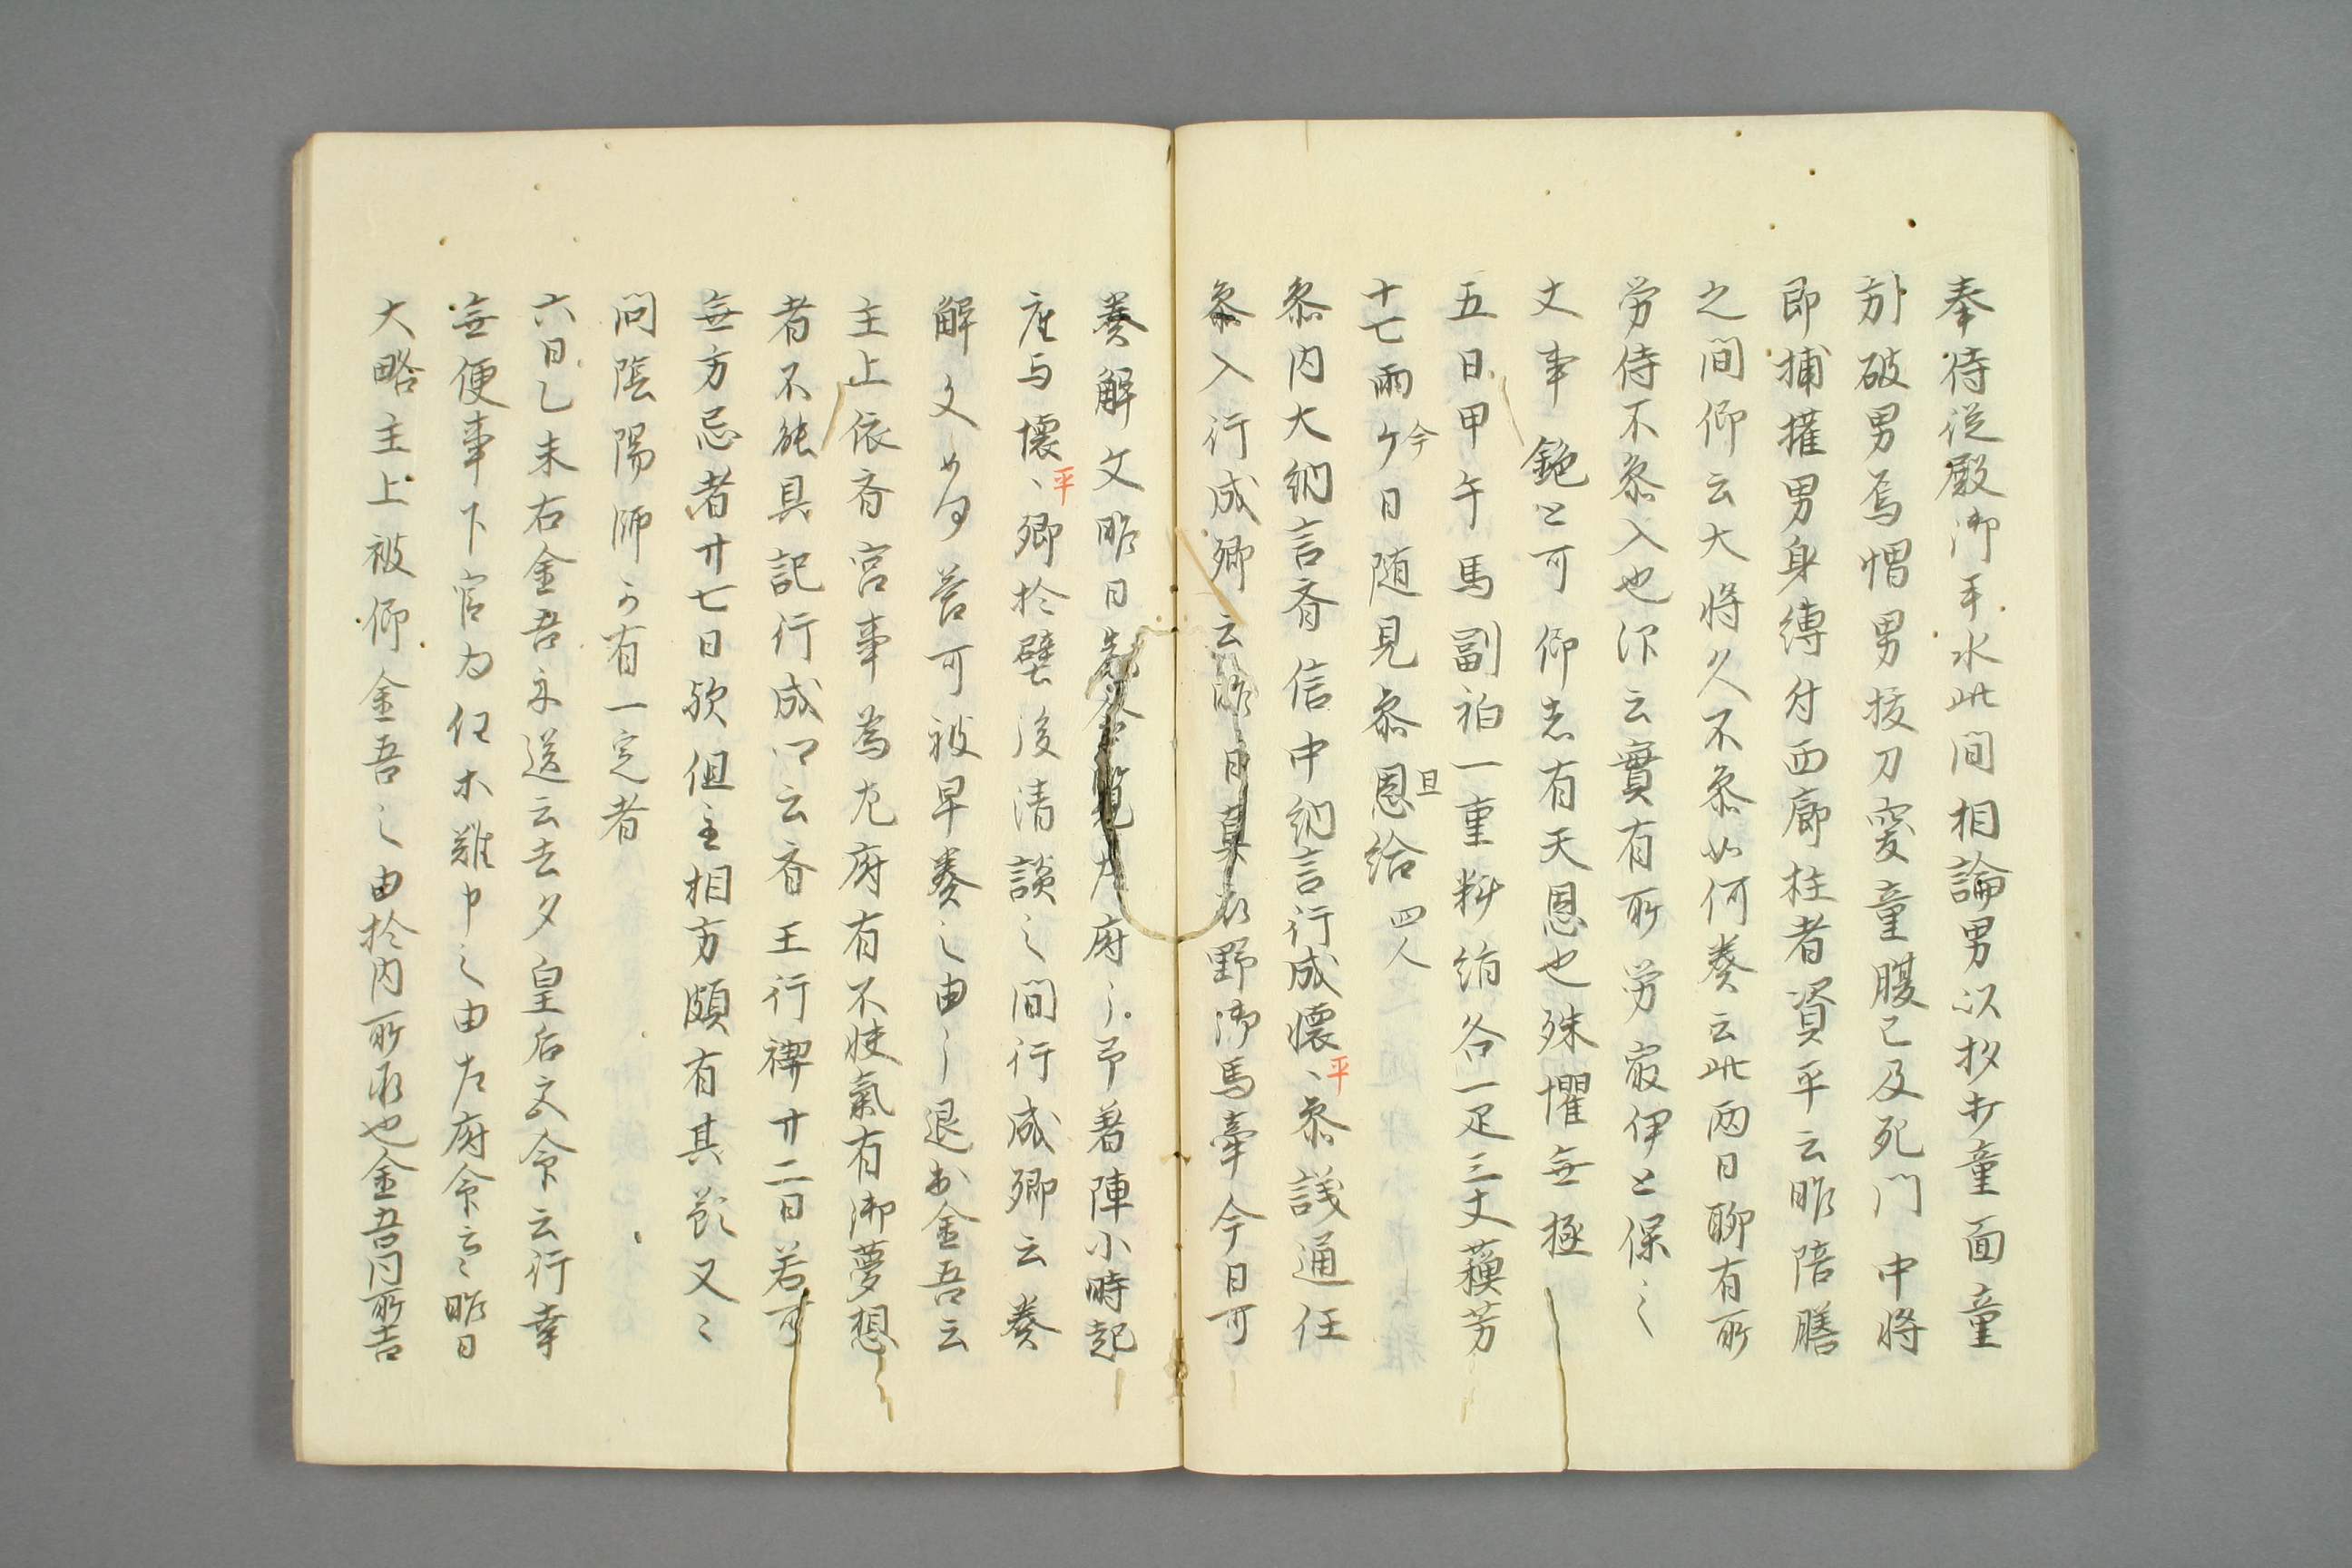 奉侍従殿御手水此間相論男以杪打童面童
刑破男烏帽男抜刀突童腹已及死門中将
即捕搦男身縛付西廊柱者資平云昨陪膳
之間仰云大将久不参如何奏云此両日聊有所
労侍不参入也仰云實有所労宿伊と保之
丈事絶と可仰志有天恩也殊懼無極
五日甲午馬副袙一重料絹各一疋三丈蘓芳
十七両ケ今日随見参恩旦給四人
参内大納言斉信中納言行成懐平参議通任
参入行成卿云昨日真衣野御馬牽今日可
奏解文昨日覧左府予著陣小時起
座与懐平卿於壁後清談之間行成卿云奏
解文如何答可被早奏之由退出金吾云
主上依斉宮事為左府有不快氣有御夢想
者不能具記行成卿云斉王行禊廿二日若可
無方忌者廿七日欤但主相方頗有其歎又々
問陰陽師可有一定者
六日乙未右金吾示送云去夕皇后宮令云行幸
無便事下官為任不難申之由左府令云昨日
大略主上被仰金吾之由於内所承也金吾同所告